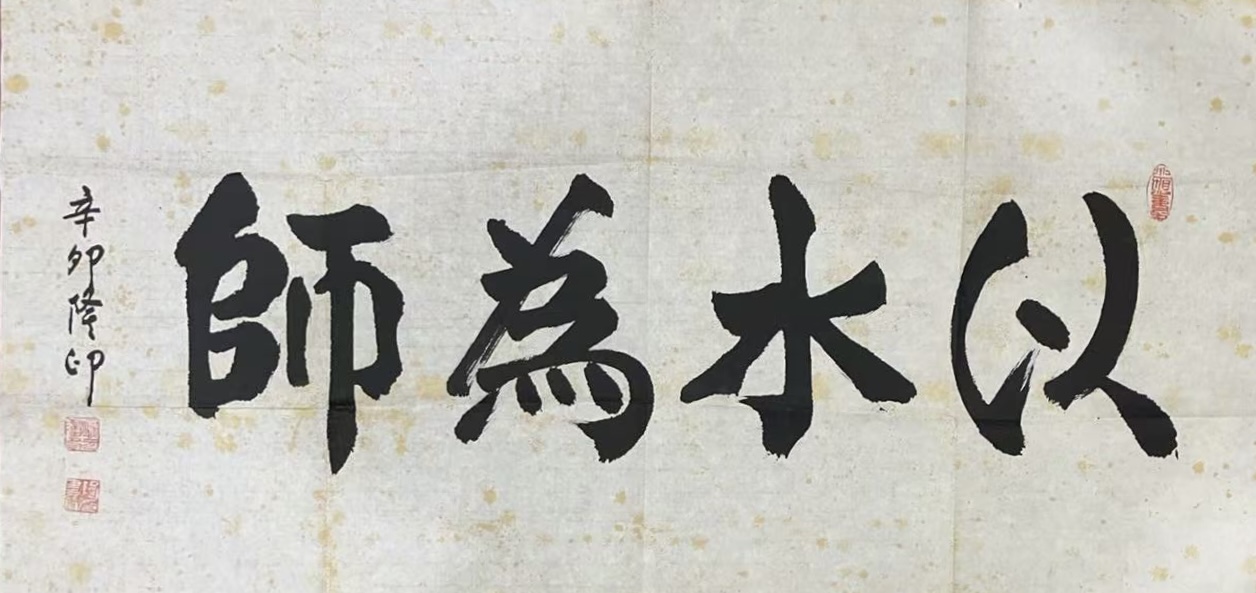 以水為師
辛卯隆印